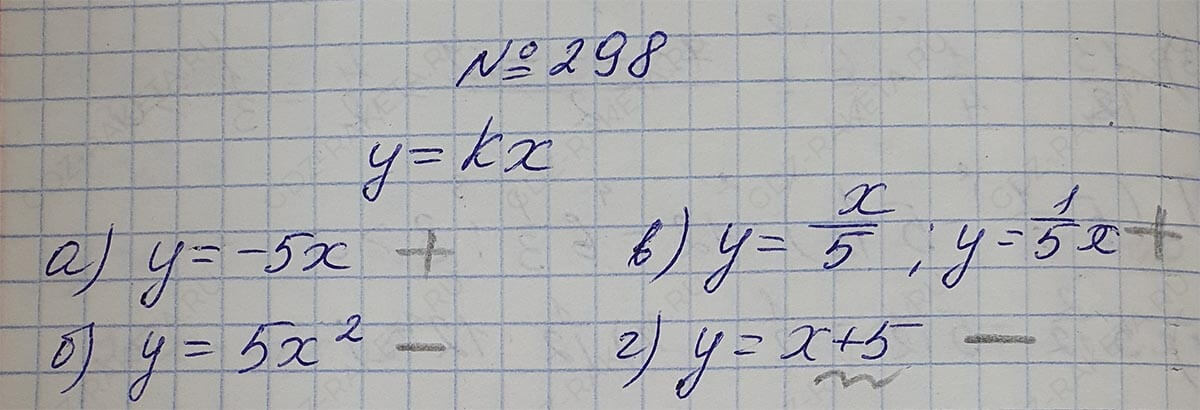 № 298
y = kx
а) y = -5x +
в) y = x/5 ; y = 1/5 x +
б) y = 5x² −
г) y = x+5 −